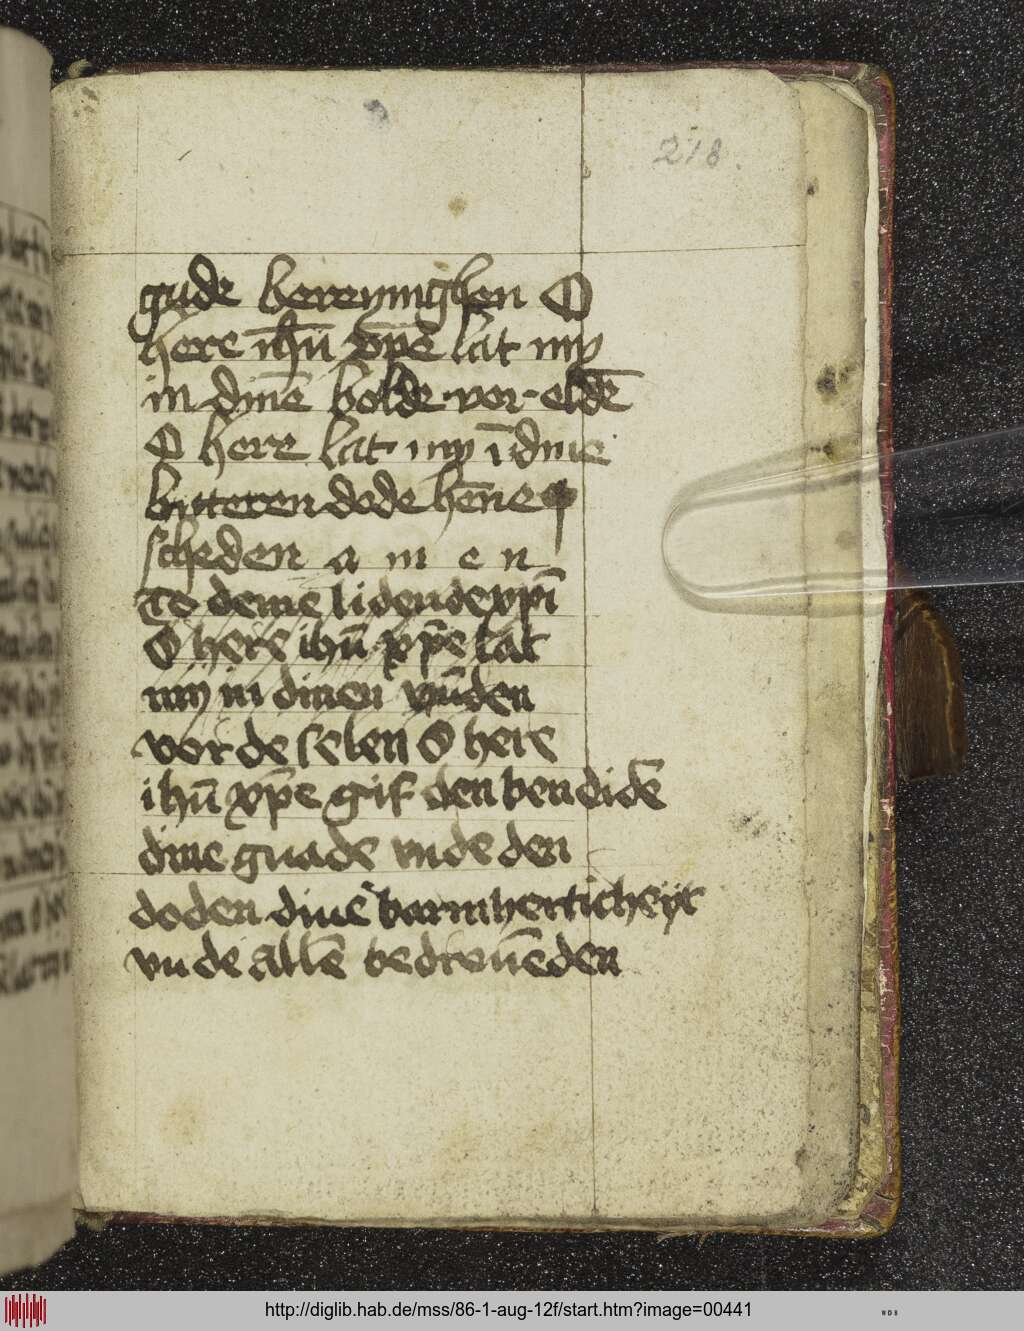 218.
gude bereyninghen O
here ih̄u xp̄e lat my
in dinē bolde vor eldē
O here lat my ī dine
bitteren dode hēne
scheden a m e n
To deme lidende xpī
O here ihū xp̄e lat
my in dinen wūden
vor de selen O here
ihū xp̄e gif den ben didē
dine gnade vnde den
doden dine barmherticheyt
vnde allē bedrouēden
http://diglib.hab.de/mss/86-1-aug-12f/start.htm?image=00441